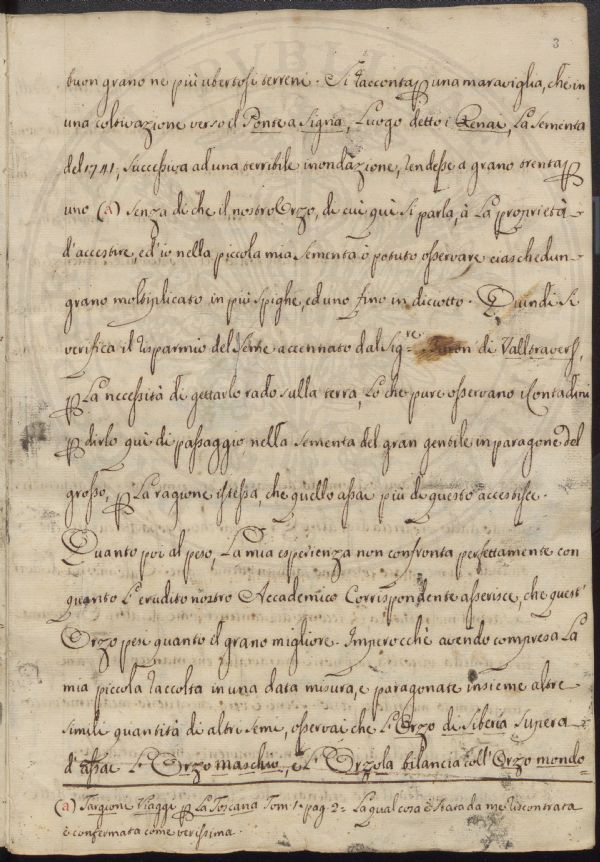 3
buon grano ne più ubertosi terreni. Si racconta ꝑ una maraviglia, che in
una coltivazione verso il Ponte a Signa, Luogo detto i Renai, La Sementa
del 1741, successiva ad una terribile inondazione, rendesse a grano trenta ꝑ
uno (a) senza di che il nostro Orzo, di cui quì si parla, à La proprietà
d'accestire, ed io nella piccola mia Sementa ò potuto osservare ciaschedun
grano moltiplicato in più spighe, ed uno fino in diciotto. Quindi si
verifica il risparmio del Seme accennato dal Sig.re di Valltravers,
ꝑ La necessità di gettarlo rado sulla terra, Lo che pure osservano i Contadini
ꝑ dirlo quì di passaggio, nella sementa del gran gentile in paragone del
grosso, ꝑ La ragione istessa, che quello assai più di questo accestisce.
Quanto poi al peso, La mia esperienza non confronta perfettamente con
quanto L' erudito nostro Accademico Corrispondente asserisce, che quest'
Orzo pesi quanto il grano migliore. Imperocchè avendo compresa La
mia piccola raccolta in una data misura, e paragonate insieme altre
simili quantità di altri semi, osservai che L' Orzo di Siberia supera
d'assai L' Orzo maschio, e L' Orzola bilancia coll' Orzo mondo
(a) Targioni Viaggi ꝑ La Toscana Tom 1. pag. 2= La qual cosa è stata da me riscontrata
e confermata come verissima.